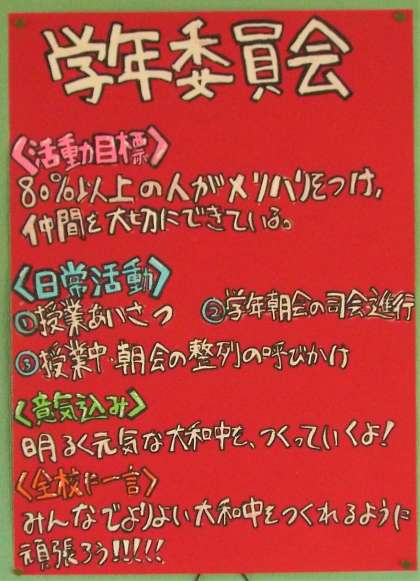 学年委員会
〈活動目標〉
80%以上の人がメリハリをつけ,
仲間を大切にできている。
〈日常活動〉
①授業あいさつ ②学年朝会の司会進行
③授業中・朝会の整列の呼びかけ
〈意気込み〉
明るく元気な大和中を、つくっていくよ!
〈全校に一言〉
みんなでよりよい大和中をつくれるように
頑張ろう!!!!!